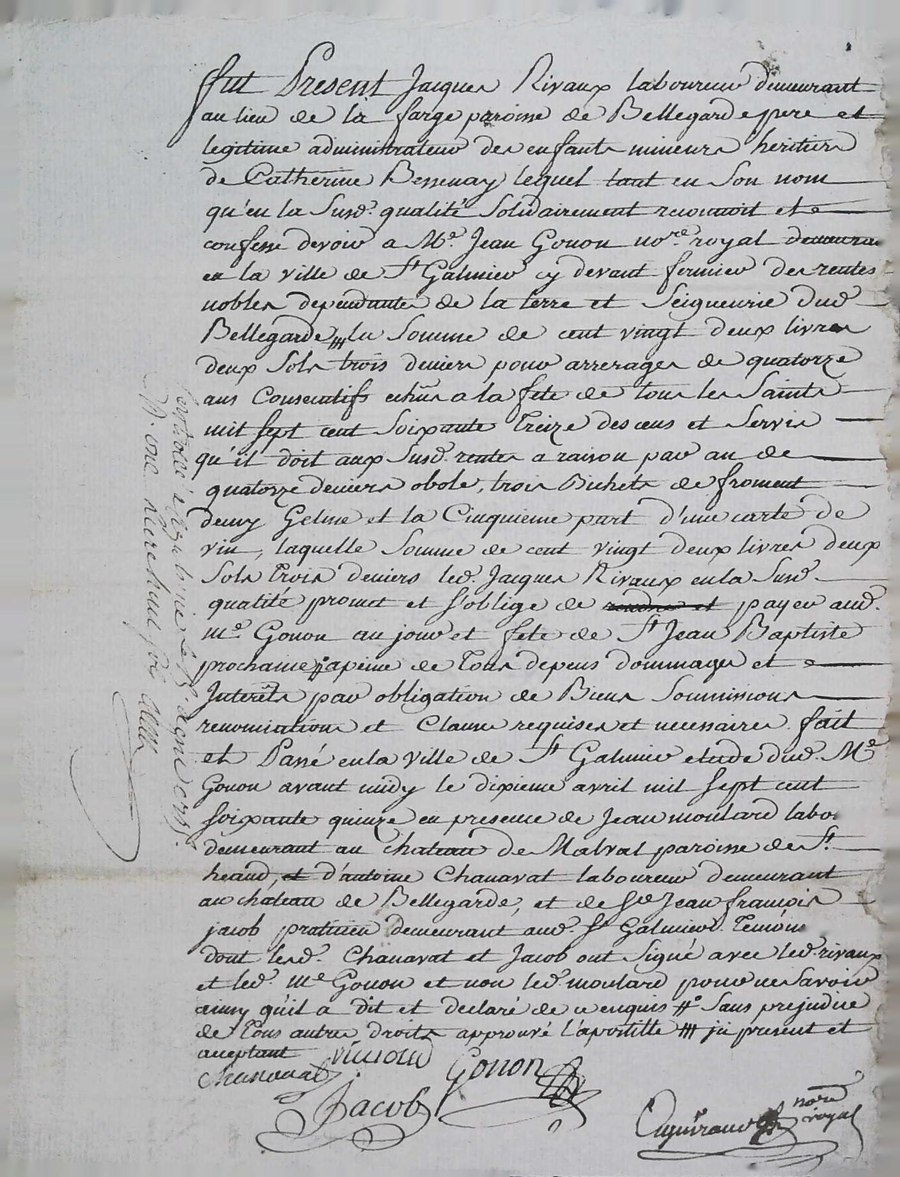 fut Present Jacques Rivaux laboureur demeurant
au lieu de la farge paroisse de Bellegarde pere et
legitime administrateur des enfants mineurs heritiers
de Catherine Bessenay lequel tant en Son nom
qu'en la Susd. qualité Solidairement reconnoit et
confesse devoir a Me. Jean Gonon nore. royal demeurant
en la ville de St Galmier cy devant fermier des rentes
nobles dependantes de la terre et Seigneurie dud.
Bellegarde, la Somme de cent vingt deux livres
deux Sols trois deniers pour arrerages de quatorze
ans Consecutifs echus a la fete de tous les Saints
mil Sept cent Soixante Treize des cens et Servis
qu'il doit aux Susd. rentes a raison par an de
quatorze deniers obole, trois Bichets de froment
demy Geline et la Cinquieme part d'une carte de
vin, laquelle Somme de cent vingt deux livres deux
Sols Trois deniers led. Jacques Rivaux en la Susd.
qualité promet et S'oblige de payer aud.
Me. Gonon au jour et fete de St Jean Baptiste
prochaine # a peine de Tous depens dommages et
Interets par obligation de Biens Soumissions
renonciations et Clause requises et necessaires fait
et Passé en la ville de St Galmier etude dud. Me
Gonon avant midy le dixieme avril mil Sept cent
Soixante quinze en presence de Jean moulard labo
demeurant au chateau de Malval paroisse de St.
heand, et d'antoine Chanavat laboureur demeurant
au chateau de Bellegarde, et de Sr. Jean françois
jacob praticien demeurant aud. St Galmier Temoins
dont lesd. Chanavat et Jacob ont Signé avec led. rivaux
et led. me Gonon et non led. moulard pour ne Savoir
ainsy qu'il a dit et declaré de ce enquis # Sans prejudice
de Tous autres droits approuvé l'apostille # ici present et
acceptant
Chanavat Gonon
Jacob
nore
royal